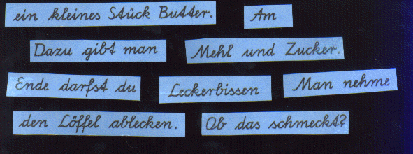 ein kleines Stück Butter. Am
Dazu gibt man Mehl und Zucker.
Ende darfst du Leckerbissen Man nehme
den Löffel ablecken. Ob das schmeckt?